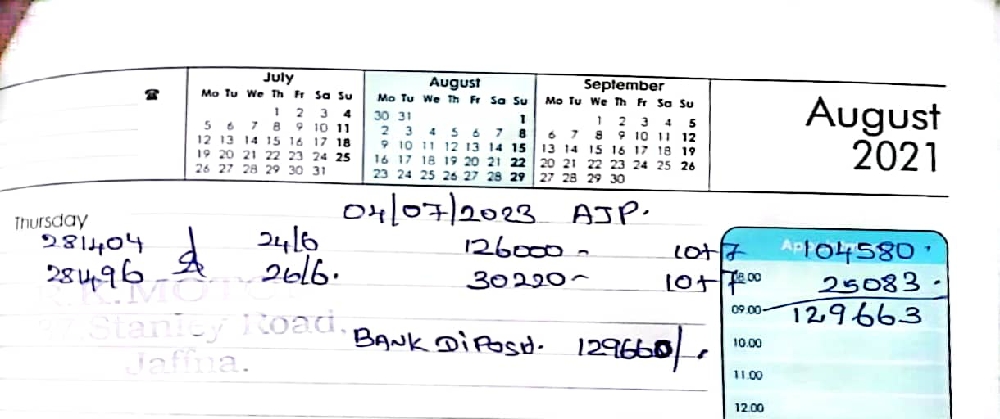 July August September
Mo Tu We Th Fr Sa Su Mo Tu We Th Fr Sa Su Mo Tu We Th Fr Sa Su
1 2 3 4 30 31 1 1 2 3 4 5
5 6 7 8 9 10 11 2 3 4 5 6 7 8 6 7 8 9 10 11 12
12 13 14 15 16 17 18 9 10 11 12 13 14 15 13 14 15 16 17 18 19
19 20 21 22 23 24 25 16 17 18 19 20 21 22 20 21 22 23 24 25 26
26 27 28 29 30 31 23 24 25 26 27 28 29 27 28 29 30
August
2021
04/07/2023 AJP.
Thursday
281404 24/6 126000 - 10+7 104580.
28496 26/6. 30220 - 10+7 08.00 25083.
09.00 129663
Stanley Road.
BANK DiPosit. 129660/.
10.00
Jaffna.
11.00
12.00